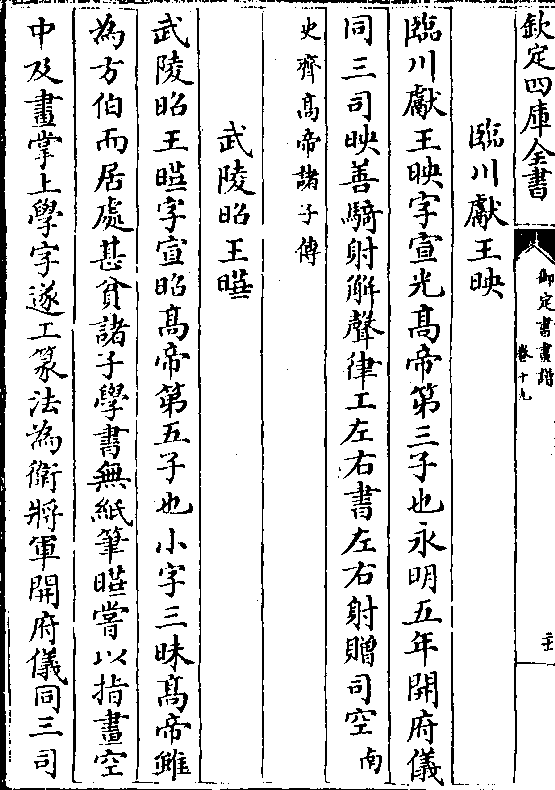 欽定四庫全書
御定書畫譜
卷十九
臨川獻王映
臨川獻王映字宣光髙帝第三子也永明五年開府儀
同三司映善騎射解聲律工左右書左右射贈司空南
史齊髙帝諸子傳
武陵昭王曅
武陵昭王曅字宣昭髙帝第五子也小字三昧髙帝雖
為方伯而居處甚貧諸子學書無紙筆曅嘗以指畫空
中及畫掌上學字遂工篆法為衛將軍開府儀同三司